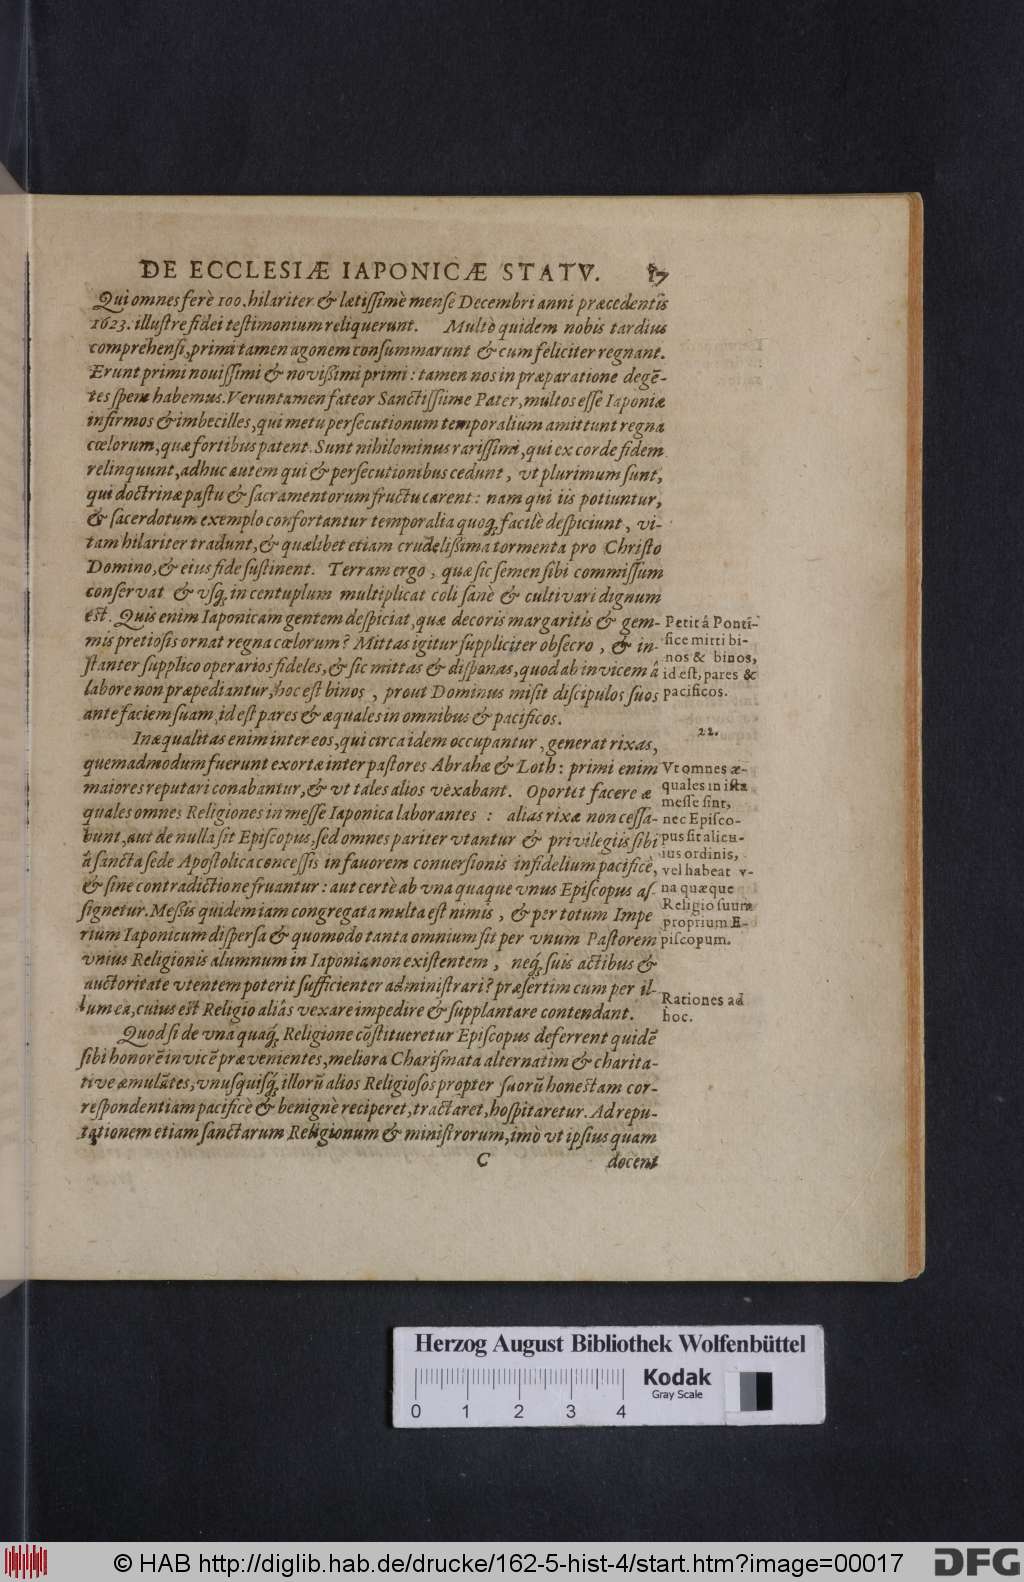 DE ECCLESIÆ IAPONICÆ STATV. 17
Qui omnes ferè 100. hilariter & lætissimè mense Decembri anni præcedentis
1623. illustre fidei testimonium reliquerunt. Multò quidem nobis tardius
comprehensi, primi tamen agonem consummarunt & cum feliciter regnant.
Erunt primi nouissimi & novißimi primi: tamen nos in præparatione degẽ-
tes spem habemus. Veruntamen fateor Sanctissime Pater, multos esse Iaponiæ
infirmos & imbecilles, qui metu persecutionum temporalium amittunt regna
cœlorum, quæ fortibus patent. Sunt nihilominus rarissimi, qui ex corde fidem
relinquunt, adhuc autem qui & persecutionibus cedunt, vt plurimum sunt,
qui doctrinæ pastu & sacramentorum fructu carent: nam qui iis potiuntur,
& sacerdotum exemplo confortantur temporalia quoq; facilè despiciunt, vi-
tam hilariter tradunt, & quælibet etiam crudelißima tormenta pro Christo
Domino, & eius fide sustinent. Terram ergo, quæ sic semen sibi commissum
conservat & vsq; in centuplum multiplicat coli sanè & cultivari dignum
est. Quis enim Iaponicam gentem despiciat, quæ decoris margaritis & gem-
mis pretiosis ornat regna cœlorum? Mittas igitur suppliciter obsecro, & in-
stanter supplico operarios fideles, & sic mittas & disponas, quod ab invicem â
labore non præpediantur, hoc est binos, prout Dominus misit discipulos suos
ante faciem suam, id est pares & æquales in omnibus & pacificos.
Petit â Ponti-
fice mitti bi-
nos & binos,
id est, pares &
pacificos.
22.
Inæqualitas enim inter eos, qui circa idem occupantur, generat rixas,
quemadmodum fuerunt exortæ inter pastores Abrahæ & Loth: primi enim
maiores reputari conabantur, & vt tales alios vexabant. Oportet facere æ
quales omnes Religiones in messe Iaponica laborantes: alias rixæ non cessa-
bunt, aut de nulla sit Episcopus, sed omnes pariter vtantur & privilegiis sibi
â sancta sede Apostolica concessis in fauorem conuersionis infidelium pacificè,
& sine contradictione fruantur: aut certè ab vna quaque vnus Episcopus as-
signetur. Meßis quidem iam congregata multa est nimis, & per totum Impe
rium Iaponicum dispersa & quomodo tanta omnium sit per vnum Pastorem
vnius Religionis alumnum in Iaponia non existentem, neq; suis actibus &
auctoritate vtentem poterit sufficienter administrari? præsertim cum per il-
lum ea, cuius est Religio aliâs vexare impedire & supplantare contendant.
Vt omnes æ-
quales in ista
messe sint,
nec Episco-
pus sit alicu-
ius ordinis,
vel habeat v-
na quæque
Religio suum
proprium E-
piscopum.
Rationes ad
hoc.
Quod si de vna quaq; Religione cõstitueretur Episcopus deferrent quidẽ
sibi honorẽ invicẽ prævenientes, meliora Charismata alternatim & charita-
tive æmulãtes, vnusquisq; illorũ alios Religiosos propter suorũ honestam cor-
respondentiam pacificè & benignè reciperet, tractaret, hospitaretur. Ad repu-
tationem etiam sanctarum Religionum & ministrorum, imò vt ipsius quam
C docent
Herzog August Bibliothek Wolfenbüttel
Kodak
Gray Scale
0 1 2 3 4
© HAB http://diglib.hab.de/drucke/162-5-hist-4/start.htm?image=00017
DFG